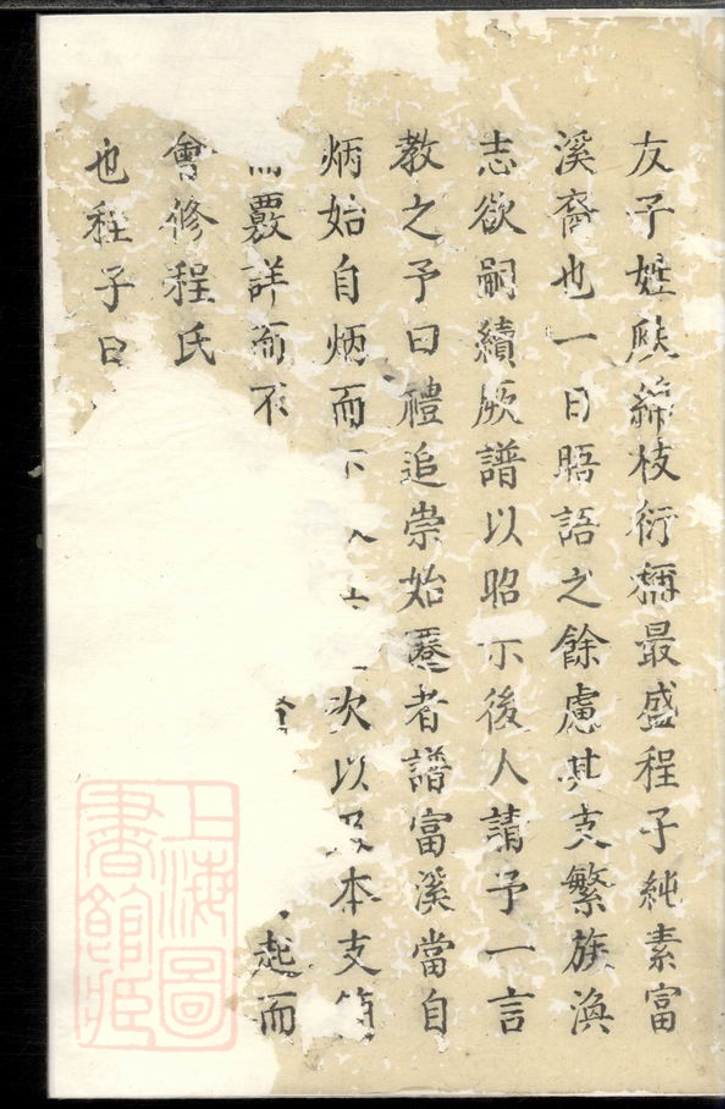 友子姓胅綿枝衍稱最盛程子純素富
溪裔也一日晤語之餘慮其支繁族渙
志欲嗣續厥譜以昭示後人請予一言
教之予曰禮追崇始遷者譜富溪當自
炳始自炳而下次以及本支
而覈詳而不起而
會修程氏
也程子曰
上海圖
書館藏